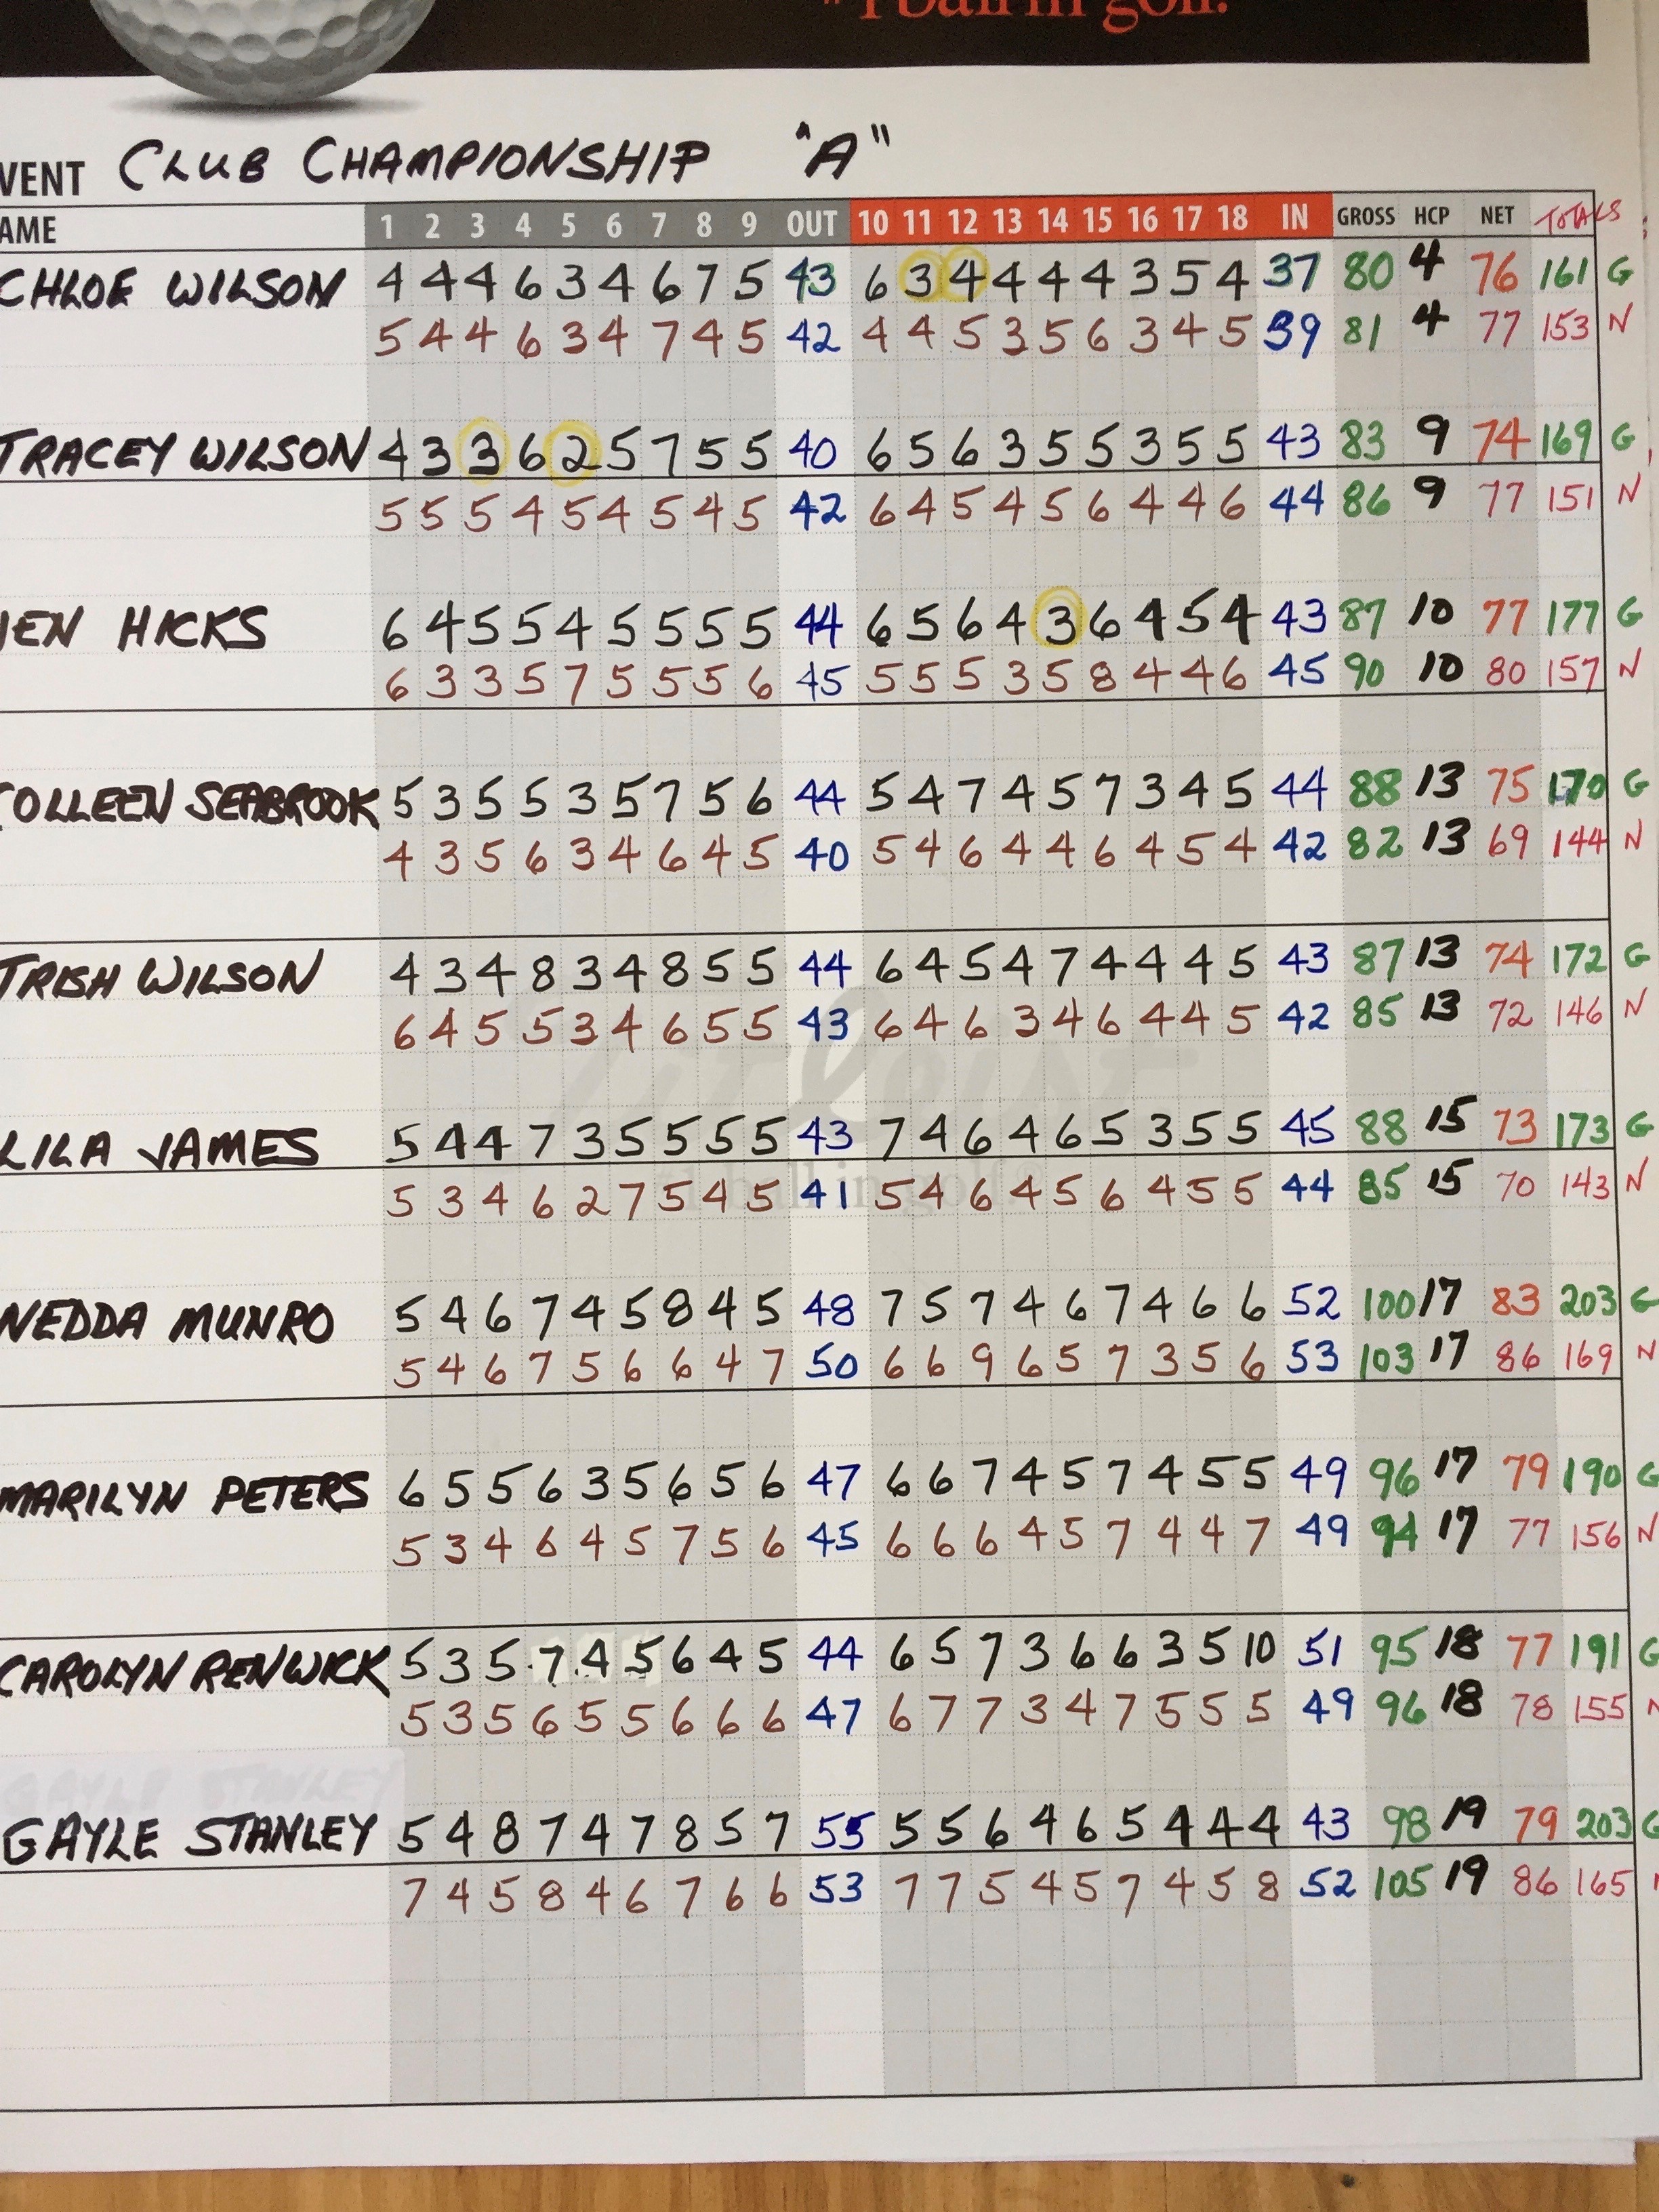 #1 ball in golf.
VENT CLUB CHAMPIONSHIP "A"
AME 1 2 3 4 5 6 7 8 9 OUT 10 11 12 13 14 15 16 17 18 IN GROSS HCP NET TOTALS
CHLOE WILSON 4 4 4 6 3 4 6 7 5 43 6 3 4 4 4 4 3 5 4 37 80 4 76 161 G
5 4 4 6 3 4 7 4 5 42 4 4 5 3 5 6 3 4 5 39 81 4 77 153 N
TRACEY WILSON 4 3 3 6 2 5 7 5 5 40 6 5 6 3 5 5 3 5 5 43 83 9 74 169 G
5 5 5 4 5 4 5 4 5 42 6 4 5 4 5 6 4 4 6 44 86 9 77 151 N
JEN HICKS 6 4 5 5 4 5 5 5 5 44 6 5 6 4 3 6 4 5 4 43 87 10 77 177 G
6 3 3 5 7 5 5 5 6 45 5 5 5 3 5 8 4 4 6 45 90 10 80 157 N
COLLEEN SEABROOK 5 3 5 5 3 5 7 5 6 44 5 4 7 4 5 7 3 4 5 44 88 13 75 170 G
4 3 5 6 3 4 6 4 5 40 5 4 6 4 4 6 4 5 4 42 82 13 69 144 N
TRISH WILSON 4 3 4 8 3 4 8 5 5 44 6 4 5 4 7 4 4 4 5 43 87 13 74 172 G
6 4 5 5 3 4 6 5 5 43 6 4 6 3 4 6 4 4 5 42 85 13 72 146 N
Titleist
LILA JAMES 5 4 4 7 3 5 5 5 5 43 7 4 6 4 6 5 3 5 5 45 88 15 73 173 G
#1 ball in golf®
5 3 4 6 2 7 5 4 5 41 5 4 6 4 5 6 4 5 5 44 85 15 70 143 N
NEDDA MUNRO 5 4 6 7 4 5 8 4 5 48 7 5 7 4 6 7 4 6 6 52 100 17 83 203 G
5 4 6 7 5 6 6 4 7 50 6 6 9 6 5 7 3 5 6 53 103 17 86 169 N
MARILYN PETERS 6 5 5 6 3 5 6 5 6 47 6 6 7 4 5 7 4 5 5 49 96 17 79 190 G
5 3 4 6 4 5 7 5 6 45 6 6 6 4 5 7 4 4 7 49 94 17 77 156 N
CAROLYN RENWICK 5 3 5 7 4 5 6 4 5 44 6 5 7 3 6 6 3 5 10 51 95 18 77 191 G
5 3 5 6 5 5 6 6 6 47 6 7 7 3 4 7 5 5 5 49 96 18 78 155 N
GAYLE STANLEY
GAYLE STANLEY 5 4 8 7 4 7 8 5 7 55 5 5 6 4 6 5 4 4 4 43 98 19 79 203 G
7 4 5 8 4 6 7 6 6 53 7 7 5 4 5 7 4 5 8 52 105 19 86 165